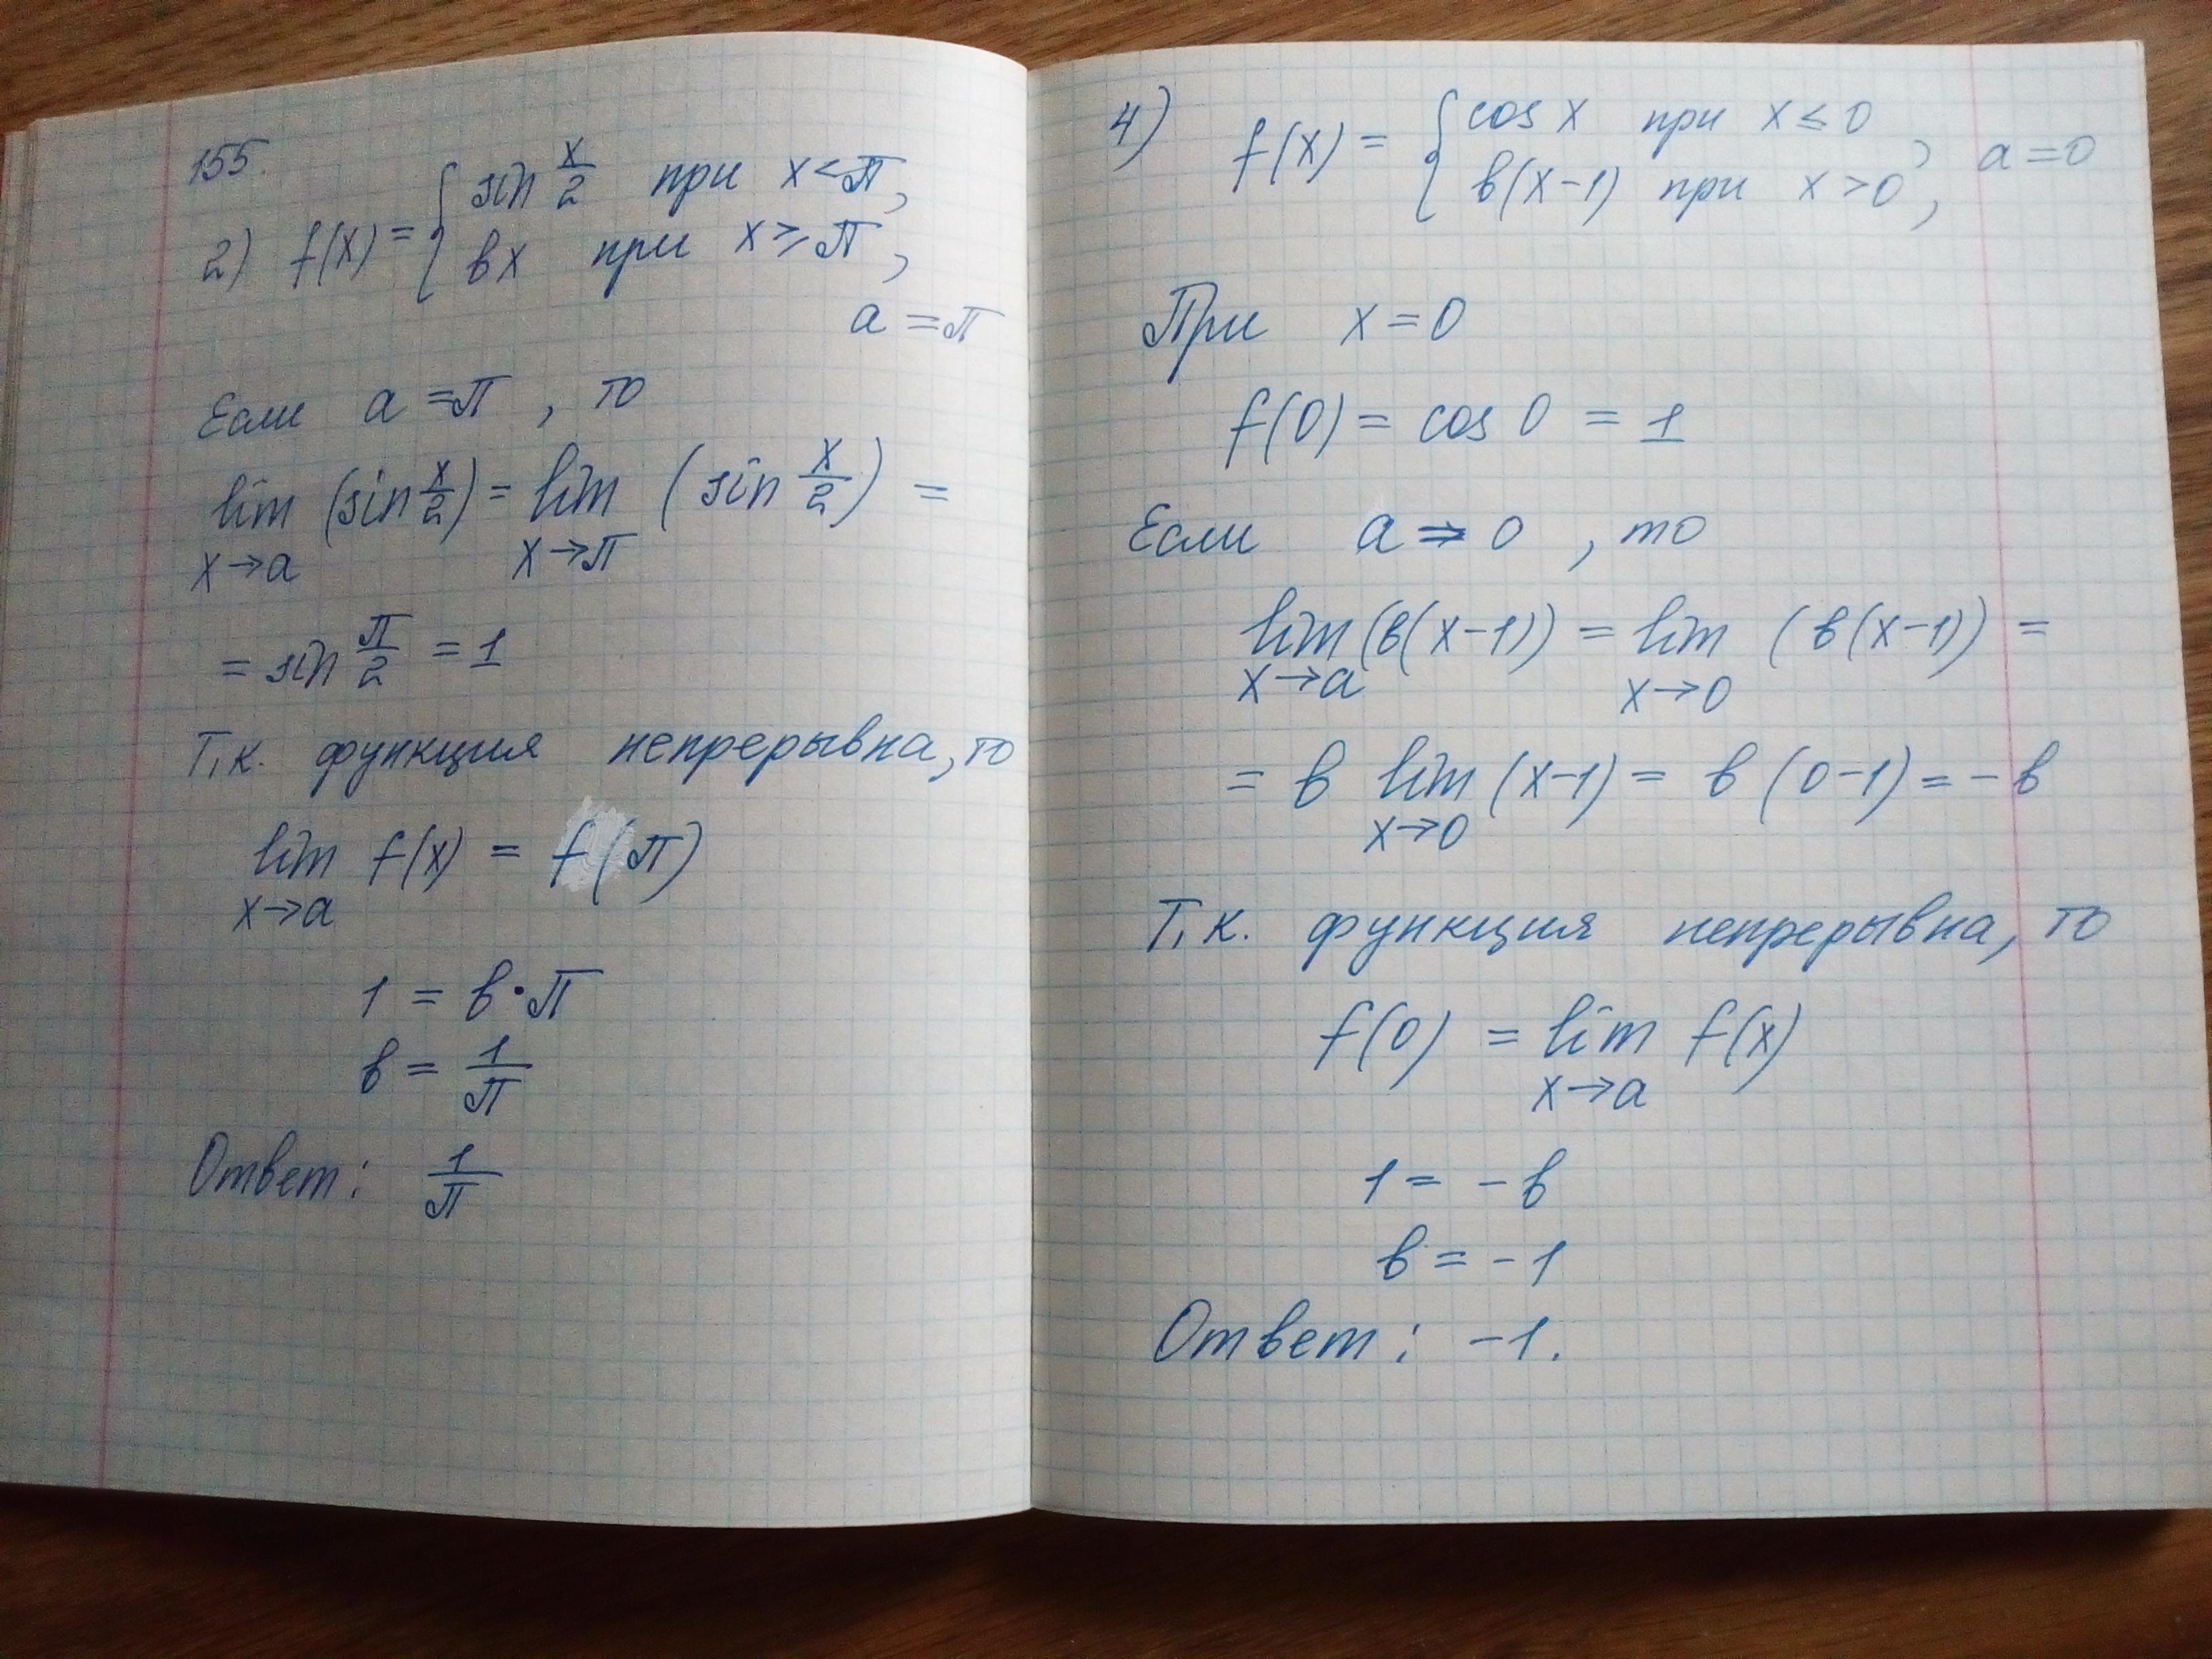 155.
2) f(x) = { sin x/2 при x < π,
вx при x ⩾ π,
a = π
Если a = π, то
lim (sin x/2) = lim (sin x/2) =
x→a x→π
= sin π/2 = 1
Т.к. функция непрерывна, то
lim f(x) = f(π)
x→a
1 = в·π
в = 1/π
Ответ: 1/π
4) f(x) = { cos x при x ≤ 0, a = 0
в(x-1) при x > 0,
При x = 0
f(0) = cos 0 = 1
Если a = 0, то
lim (в(x-1)) = lim (в(x-1)) =
x→a x→0
= в lim (x-1) = в (0-1) = -в
x→0
Т.к. функция непрерывна, то
f(0) = lim f(x)
x→a
1 = -в
в = -1
Ответ: -1.